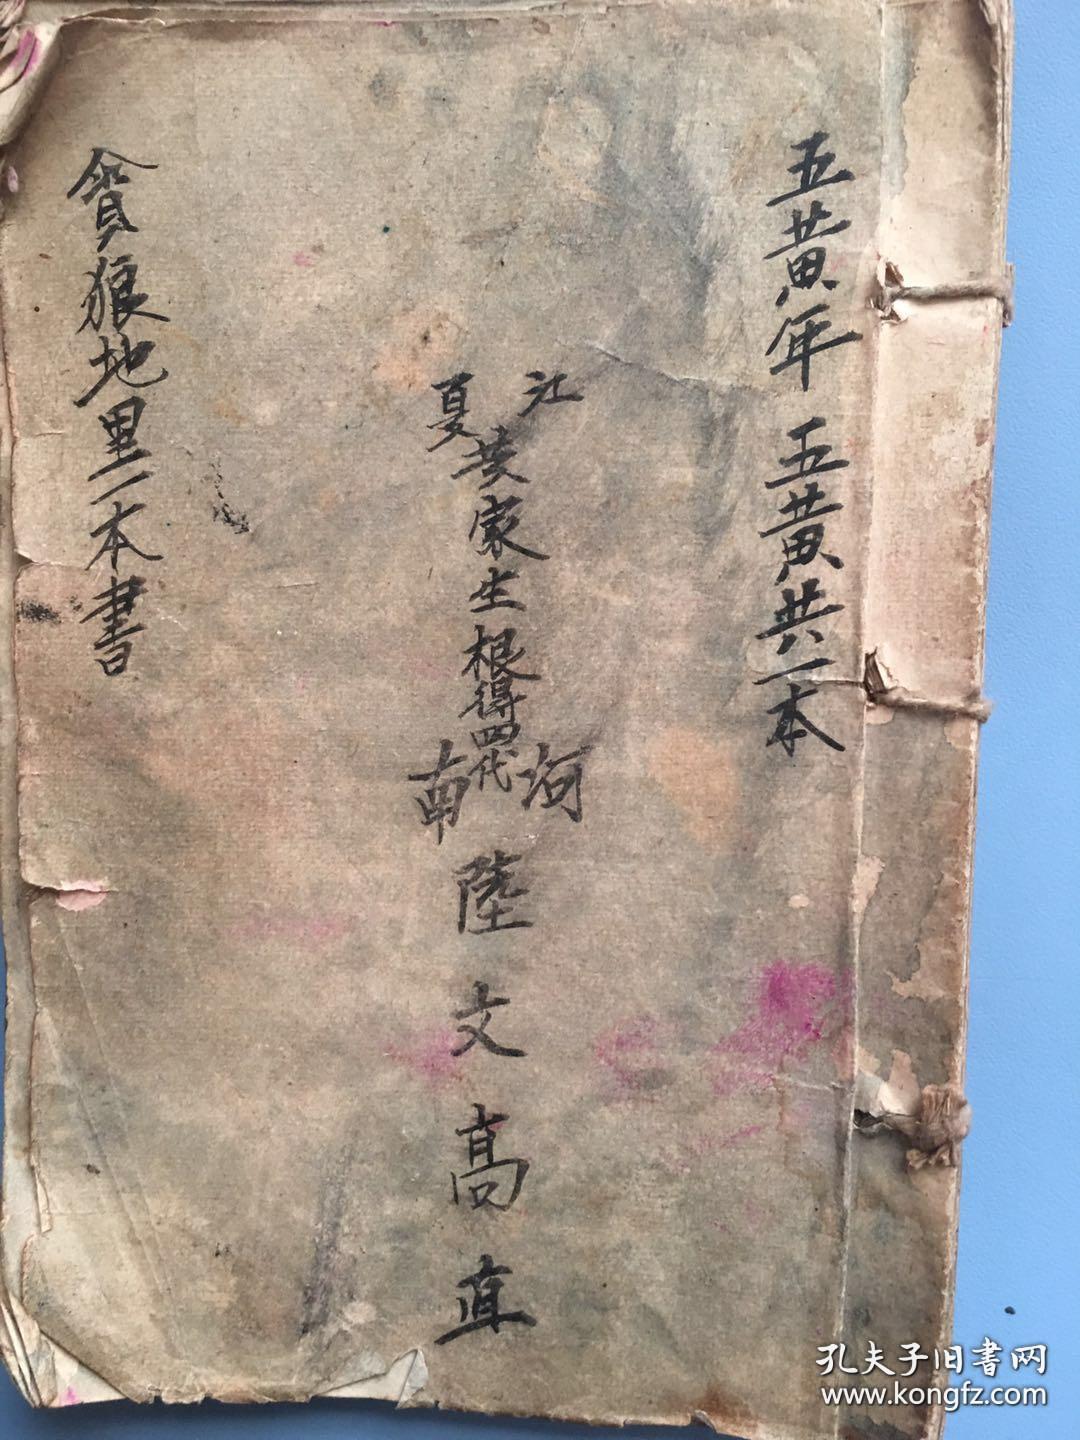 五黄年五黄共一本
江夏黄家生根得四代
河南陸文高直
貪狼地里一本書
孔夫子旧書网
www.kongfz.com